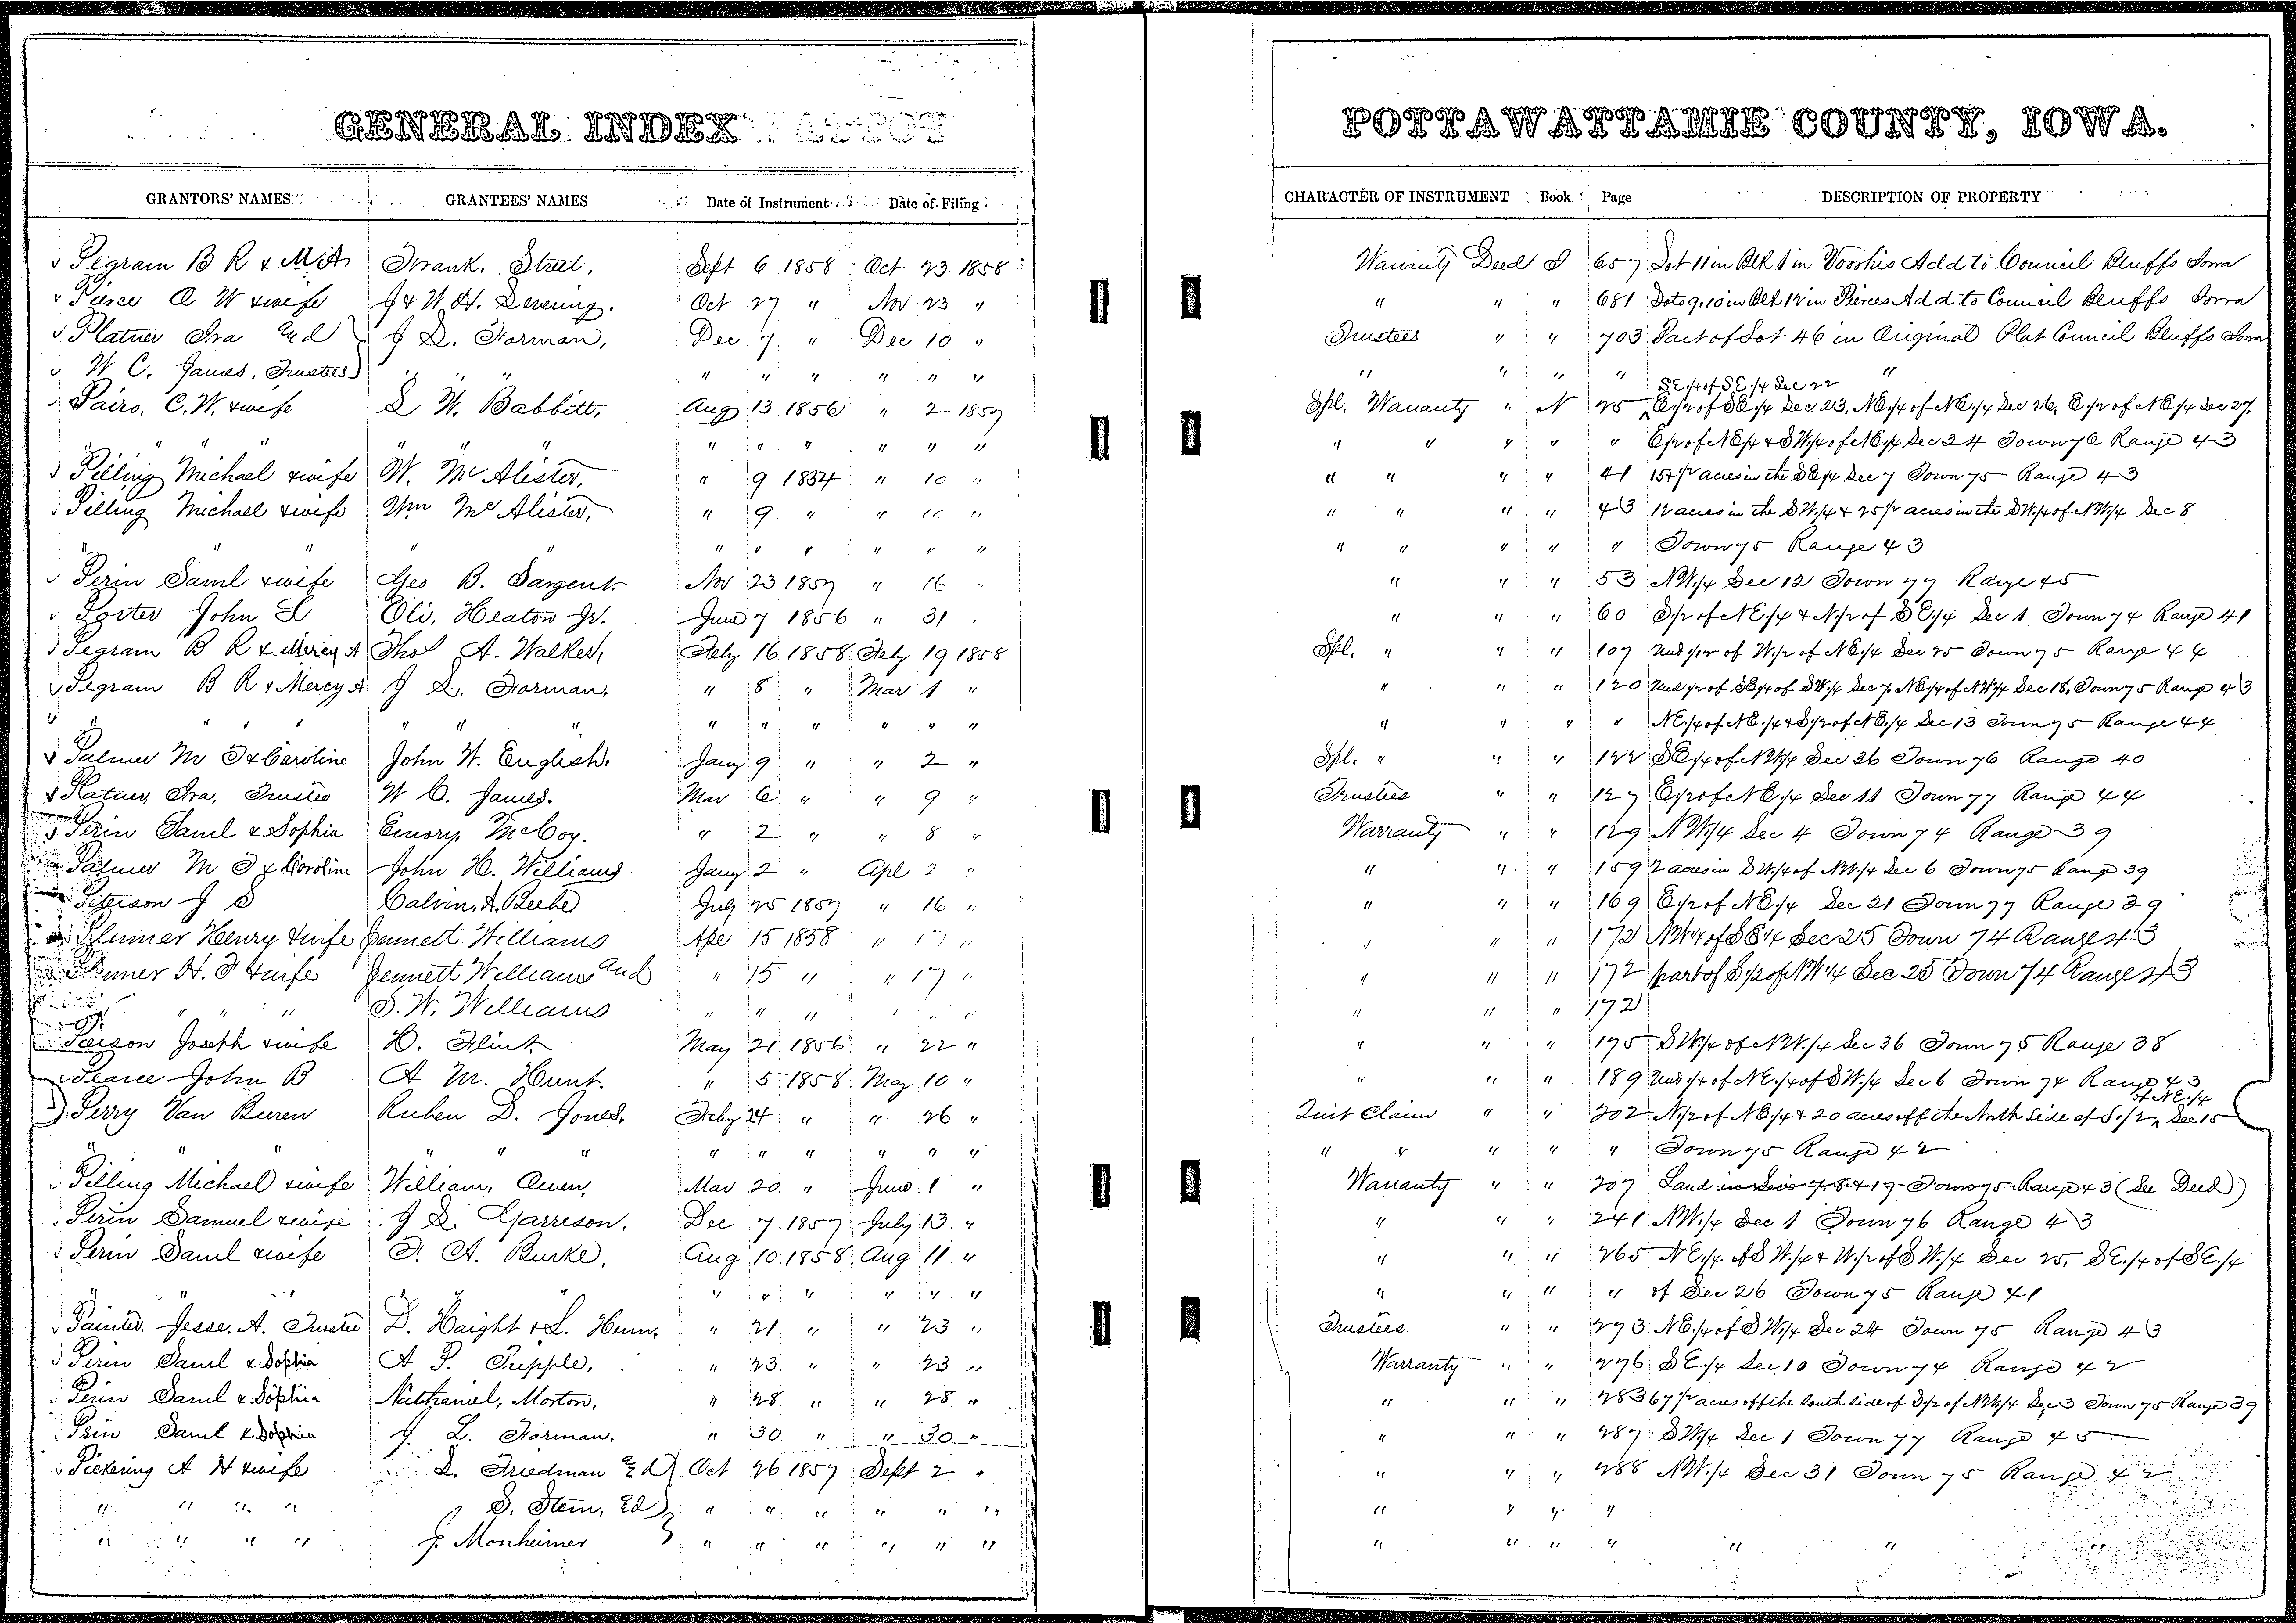 GENERAL INDEX
GRANTORS' NAMES GRANTEES' NAMES Date of Instrument Date of Filing
Pegram B R & M A Frank. Street. Sept 6 1858 Oct 23 1858
Pierce A W & wife J & W. H. Devering. Oct 27 " Nov 23 "
Platner Ira and J D. Forman, Dec 7. " Dec 10 "
W C. James, Trustees " " " " " " " " "
Pairo, C. W. & wife L W. Babbitt, Aug 13 1856 " 2 1857
" " " " " " " " " " " "
Pilling Michael & wife W. McAlister, " 9 1854 " 10 "
Pilling Michael & wife Wm McAlister, " 9 " " 10 "
" " " " " " " " " "
Perin Saml & wife Geo B. Sargent. Nov 23 1857 " 16 "
Porter John L Eli, Heaton Jr. June 7 1856 " 31 "
Pegram B R & Mercy A Thos A. Walker, Feby 16 1858 Feby 19 1858
Pegram B R & Mercy A J D. Forman, " 8 " Mar 1 "
" " " " " " " " " " " "
Palmer M D & Caroline John W. English. Jany 9 " " 2 "
Platner, Ira, Trustee W C. James. Mar 6 " " 9 "
Perin Saml & Sophia Emory McCoy. " 2 " " 8 "
Palmer M D & Caroline John H. Williams Jany 2 " Apl 2 "
Peterson J S Calvin, A. Beebe July 25 1857 " 16 "
Plumer Henry & wife Jennett Williams Apr 15 1858 " 17 "
Plumer H. F & wife Jennett Williams and " 15 " " 17 "
" " " S. W. Williams " " " " " "
Pierson Joseph & wife H. Flint May 21 1856 " 22 "
Pearce John B A M. Hunt. " 5 1858 May 10 "
Perry Van Buren Ruben D. Jones, Feby 24 " " 26 "
" " " " " " " " " " "
Pilling Michael & wife William, Owen, Mar 20 " June 1 "
Perin Samuel & wife J D. Garrison, Dec 7 1857 July 13 "
Perin Saml & wife F. A. Burke, Aug 10 1858 Aug 11 "
" " " " " " " " "
Painter. Jesse. A. Trustee D. Haight & L. Henn, " 21 " " 23 "
Perin Saml & Sophia A P. Tripple, " 23 " " 23 "
Perin Saml & Sophia Nathaniel, Morton, " 28 " " 28 "
Perin Saml & Sophia J. L. Forman, " 30 " " 30 "
Pickering A H & wife L. Friedman & Oct 26 1857 Sept 2 "
" " " " S. Stein, & " " " " " "
" " " " J. Monheimer " " " " " "
POTTAWATTAMIE COUNTY, IOWA.
CHARACTER OF INSTRUMENT Book Page DESCRIPTION OF PROPERTY
Warranty Deed I 657 Lot 11 in Blk 1 in Voorhis Add to Council Bluffs Iowa
" " " 681 Lots 9, 10 in Blk 12 in Pierces Add to Council Bluffs Iowa
Trustees " " 703 Part of Lot 46 in Original Plat Council Bluffs Iowa
" " " " "
SE 1/4 of SE 1/4 Sec 22
Spl. Warranty " N 25 E 1/2 of SE 1/4 Sec 23, NE 1/4 of NE 1/4 Sec 26, E 1/2 of NE 1/4 Sec 27,
" " " " " E 1/2 of NE 1/4 & SW 1/4 of NE 1/4 Sec 24 Town 76 Range 43
" " " " 41 15 1/2 acres in the SE 1/4 Sec 7 Town 75 Range 43
" " " " 43 12 acres in the SW 1/4 & 25 1/2 acres in the SW 1/4 of NW 1/4 Sec 8
" " " " " Town 75 Range 43
" " " 53 NW 1/4 Sec 12 Town 77 Range 45
" " " 60 S 1/2 of NE 1/4 & N 1/2 of SE 1/4 Sec 1 Town 74 Range 41
Spl. " " " 107 Und 1/2 of W 1/2 of NE 1/4 Sec 25 Town 75 Range 44
" " " 120 Und 1/2 of SE 1/4 of SW 1/4 Sec 7, NE 1/4 of NW 1/4 Sec 18, Town 75 Range 43
" " " " NE 1/4 of NE 1/4 & S 1/2 of NE 1/4 Sec 13 Town 75 Range 44
Spl. " " " 122 SE 1/4 of NW 1/4 Sec 26 Town 76 Range 40
Trustees " " 127 E 1/2 of NE 1/4 Sec 11 Town 77 Range 44
Warranty " " 129 NW 1/4 Sec 4 Town 74 Range 39
" " " 159 2 acres in SW 1/4 of NW 1/4 Sec 6 Town 75 Range 39
" " " 169 E 1/2 of NE 1/4 Sec 21 Town 77 Range 39
" " " 172 NW 1/4 of SE 1/4 Sec 25 Town 74 Range 43
" " " 172 part of S 1/2 of NW 1/4 Sec 25 Town 74 Range 43
" " " 172
" " " 175 SW 1/4 of NW 1/4 Sec 36 Town 75 Range 38
" " " 189 Und 1/4 of NE 1/4 of SW 1/4 Sec 6 Town 74 Range 43
of NE 1/4
Quit Claim " " 202 N 1/2 of NE 1/4 & 20 acres off the North Side of S 1/2 Sec 15
" " " " " Town 75 Range 42
Warranty " " 207 Land in Secs 7, 8 & 17 Town 75 Range 43 (See Deed)
" " " 241 NW 1/4 Sec 1 Town 76 Range 43
" " " 265 NE 1/4 of SW 1/4 & W 1/2 of SW 1/4 Sec 25, SE 1/4 of SE 1/4
" " " " of Sec 26 Town 75 Range 41
Trustees " " 273 NE 1/4 of SW 1/4 Sec 24 Town 75 Range 43
Warranty " " 276 SE 1/4 Sec 10 Town 74 Range 42
" " " 283 67 1/2 acres off the South side of S 1/2 of NW 1/4 Sec 3 Town 75 Range 39
" " " 287 SW 1/4 Sec 1 Town 77 Range 45
" " " 288 NW 1/4 Sec 31 Town 75 Range 42
" " " "
" " " " " "